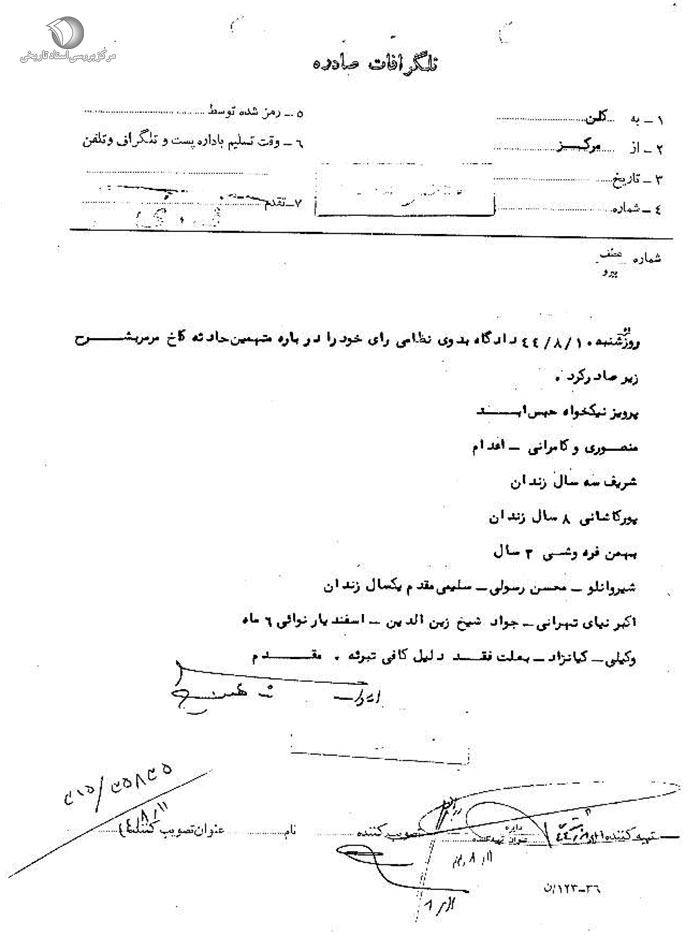 مرکز بررسی اسناد تاریخی
تلگرافات صادره
۱ـ به کلن
۲ـ از مرکز
۳ـ تاریخ
۴ـ شماره
۵ـ رمز شده توسط
۶ـ وقت تسلیم باداره پست و تلگراف وتلفن
۷ـ تقدم
شماره عطف
پیرو
روزشنبه ۴۴/۸/۱۰ دادگاه بدوی نظامی رای خود را درباره متهمین حادثه کاخ مرمر بشرح
زیر صادر کرد .
پرویز نیکخواه حبس ابد
منصوری و کامرانی ـ اعدام
شریف سه سال زندان
پورکاشانی ۸ سال زندان
بهمن فره وشی ۳ سال
شیروانلو ـ محسن رسولی ـ سلیمی مقدم یکسال زندان
اکبر نیای تهرانی ـ جواد شیخ زین الدین ـ اسفندیار نوائی ۶ ماه
وکیلی ـ کیانژاد ـ بعلت فقد دلیل کافی تبرئه . مقدم
تهیه کننده
عنوان تهیه کننده
تصویب کننده
نام
عنوان تصویب کننده
۴۴/۸/۱۱
۳۶-۱۲۳/ن